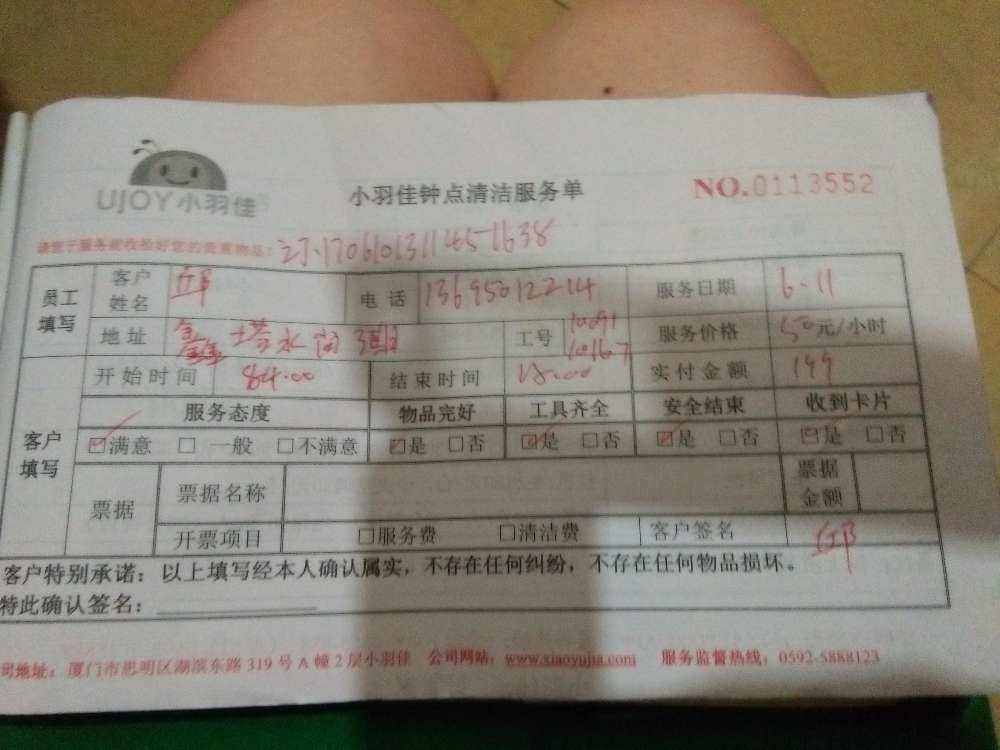 UJOY小羽佳
小羽佳钟点清洁服务单
NO.0113552
请您于服务前收拾好您的贵重物品:
员工填写 客户姓名 邱 电话 13695012214 服务日期 6.11
地址 水 工号 10091 10167 服务价格 50元/小时
开始时间 结束时间 实付金额 199
客户填写 服务态度 物品完好 工具齐全 安全结束 收到卡片
☑满意 □一般 □不满意 ☑是 □否 ☑是 □否 ☑是 □否 ☑是 □否
票据 票据名称 票据金额
开票项目 □服务费 □清洁费 客户签名 邱
客户特别承诺:以上填写经本人确认属实,不存在任何纠纷,不存在任何物品损坏。
特此确认签名:
司地址:厦门市思明区湖滨东路319号A幢2层小羽佳 公司网站:www.xiaoyujia.com 服务监督热线:0592-5888123